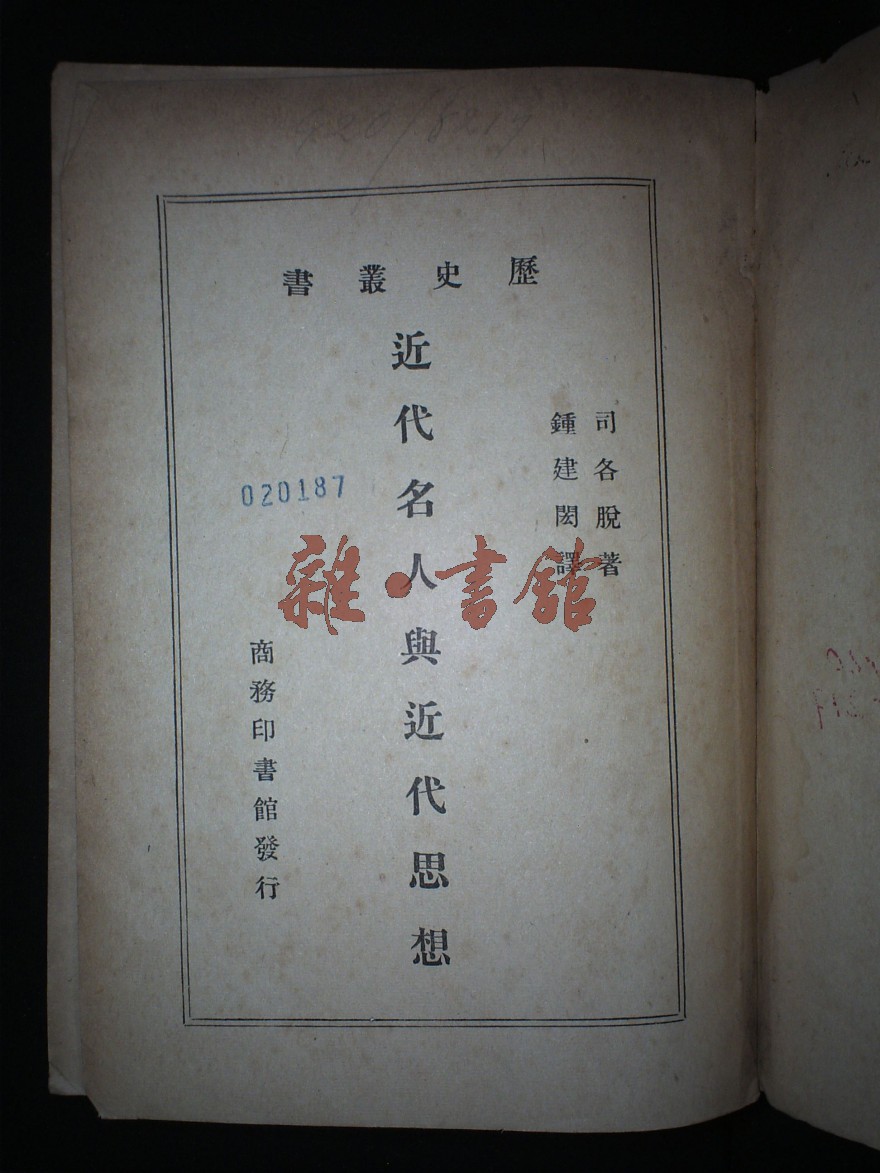 歷史叢書
司各脫著
鍾建閎譯
近代名人與近代思想
020187
商務印書館發行
雜·書館